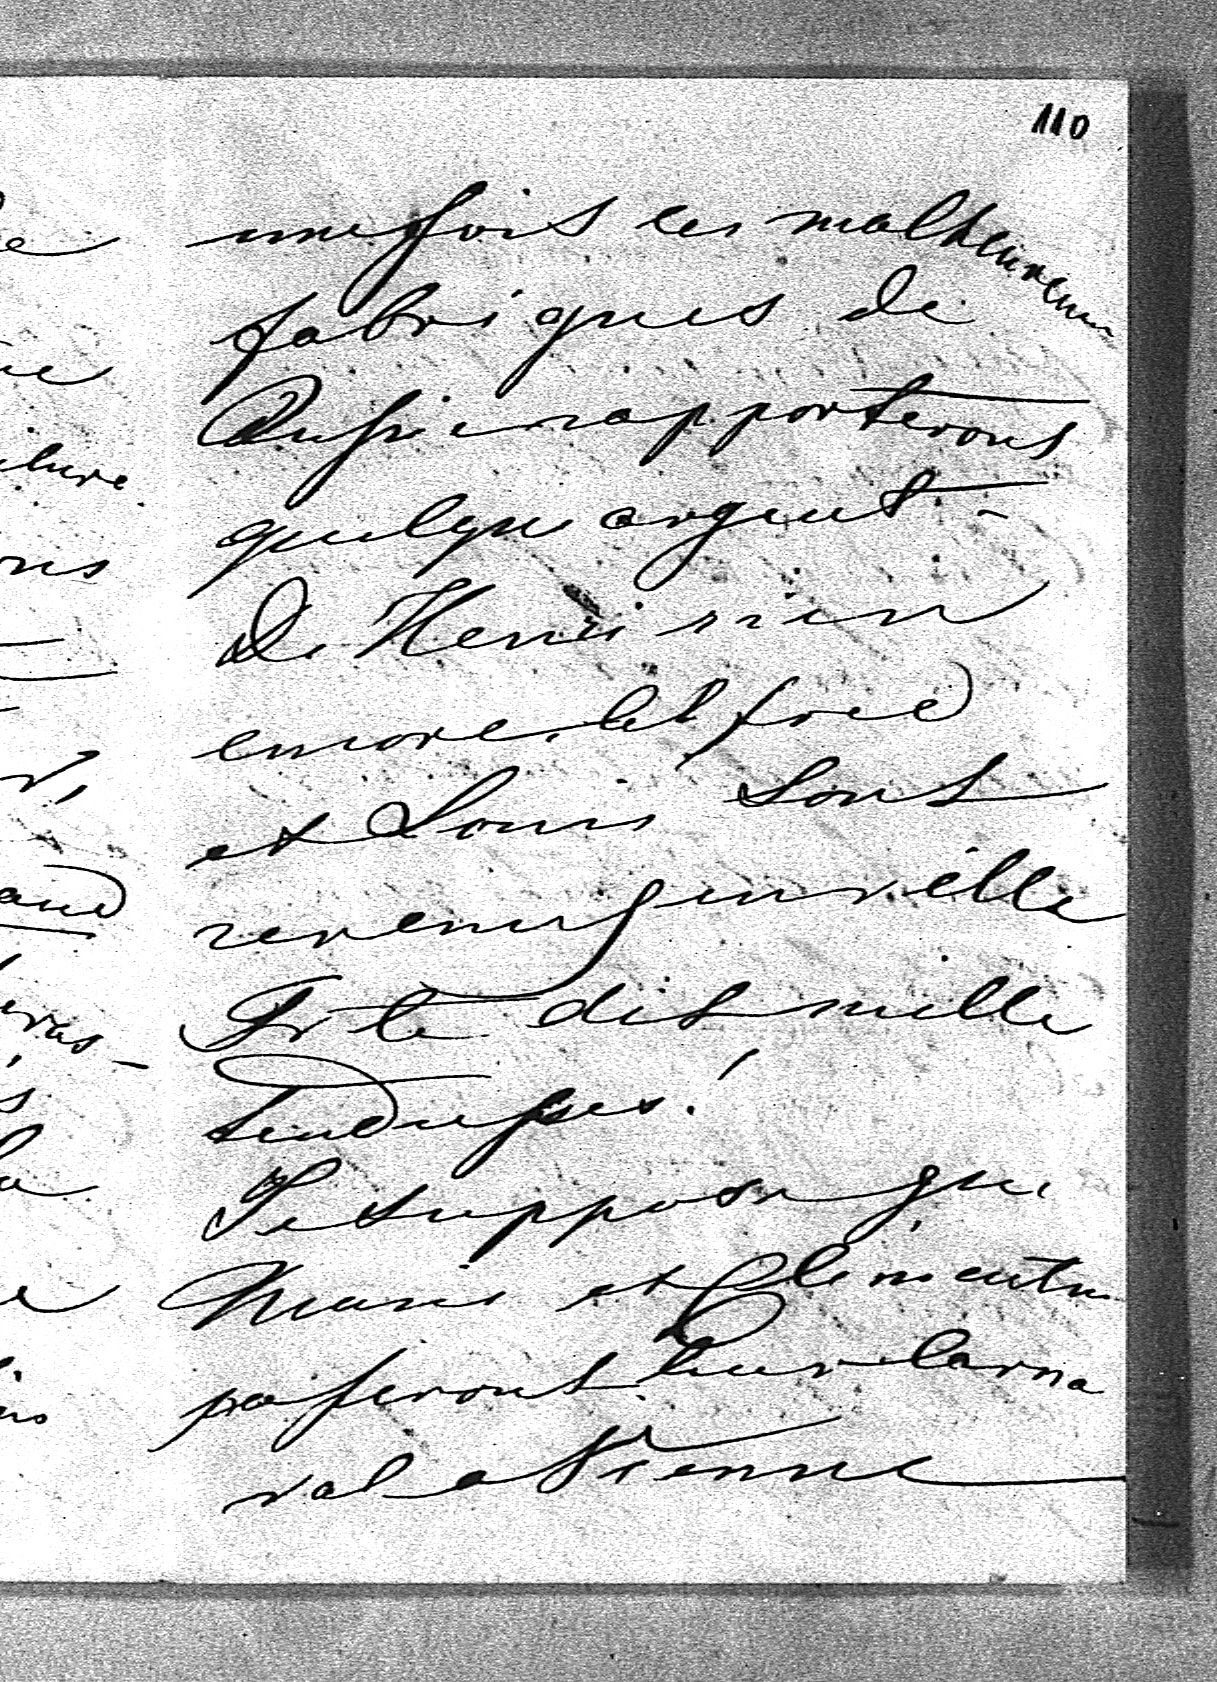 110
une fois les malheureuses
fabriques de
Russie rapporterons
quelque argent -
De Henri rien
encore. Alfred
et Louis sont
revenus en ville
Je te dis mille
tendresses!
Je suppose que
Marie et Clémentine
passerons leur Carna
val a Vienne